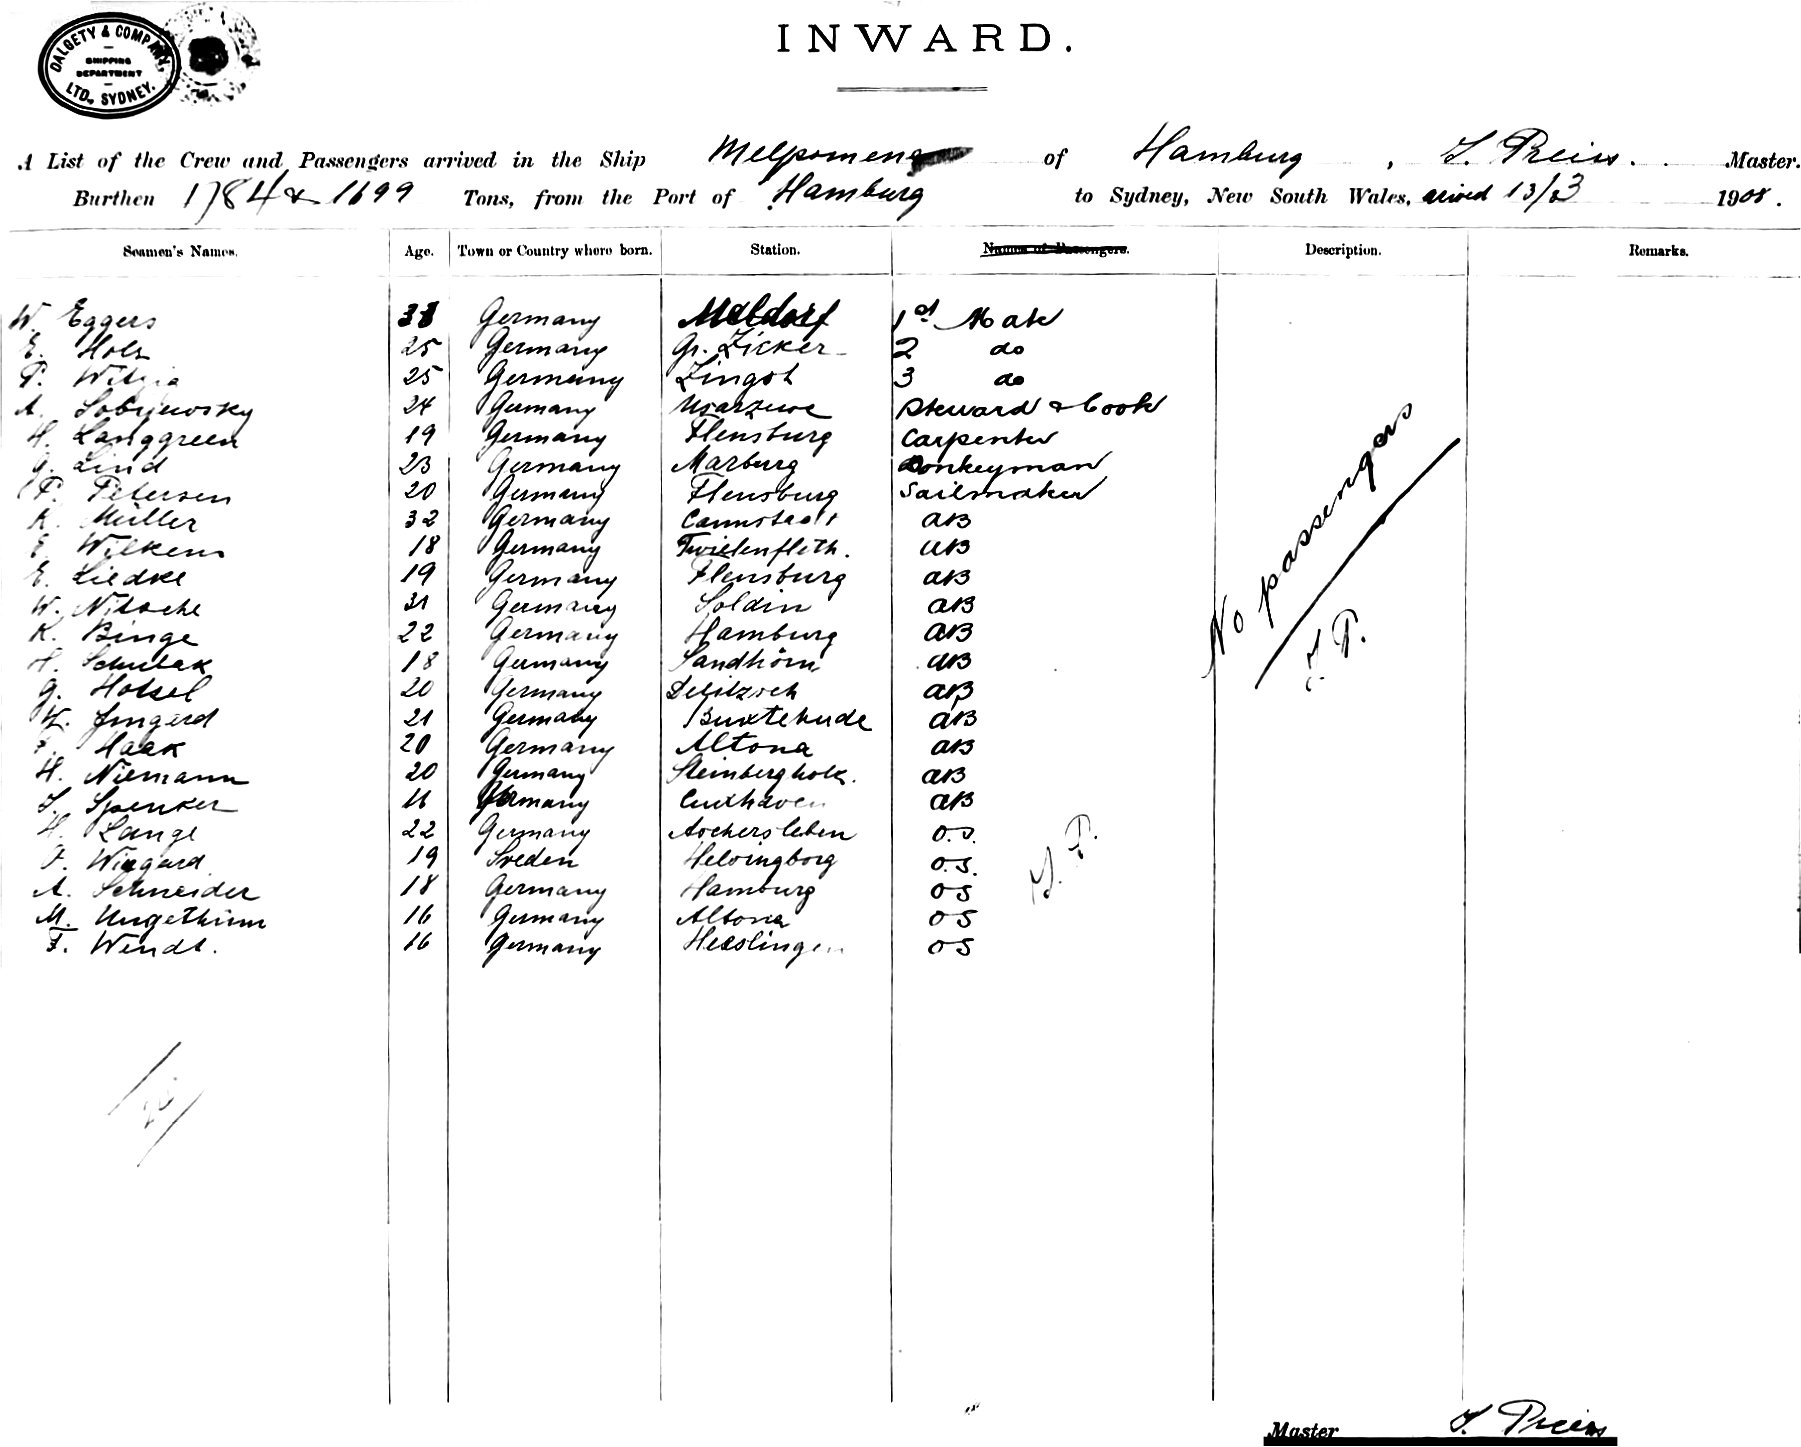 DALGETY & COMPANY,
SHIPPING
DEPARTMENT
LTD., SYDNEY.
INWARD.
A List of the Crew and Passengers arrived in the Ship Melpomene of Hamburg, T. Preiss. Master.
Burthen 1784 & 1699 Tons, from the Port of Hamburg to Sydney, New South Wales, arived 13/3 1908.
Seamen's Names. Age. Town or Country where born. Station. Names of Passengers. Description. Remarks.
W. Eggers Germany Meldorf 1st Mate
E. Holz 25 Germany Gr. Zicker 2 do
P. 25 Germany Zingst 3 do
A. 24 Germany Steward & Cook
H. Langgreen 19 Germany Flensburg Carpenter
G. Lind 23 Germany Marburg Donkeyman
P. Petersen 20 Germany Flensburg Sailmaker
K. Müller 32 Germany Cannstadt AB
E. Wilkens 18 Germany Twielenfleth. AB
E. Liedke 19 Germany Flensburg AB
W. Nitsche 31 Germany Soldin AB
K. Binge 22 Germany Hamburg AB
H. 18 Germany Sandhörn AB
G. 20 Germany Delitzsch AB
21 Germany Buxtehude AB
Haak 20 Germany Altona AB
H. Niemann 20 Germany AB
Spenker Germany Cuxhaven AB
H. Lange 22 Germany Aschersleben O.S.
Wiegard 19 Sveden Helsingborg O.S.
A. Schneider 18 Germany Hamburg OS
M. 16 Germany Altona OS
F. Wendt. 16 Germany Heeslingen OS
No passengers
T. P.
T. P.
Master T. Preiss